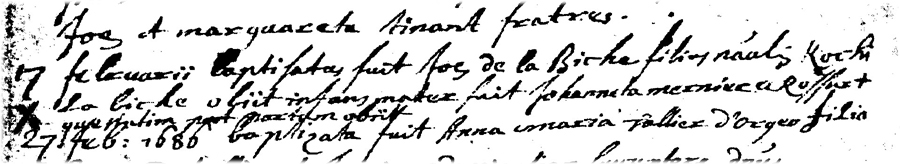 Joes et marquareta tinant fratres.
17 februarii baptisatus fuit Joes de la Biche filius nauli Rochi
la biche obiit infans mater fuit Johanneta merniuex Rossurt
quae statim post partum obiit
27 feb: 1686 baptizata fuit Anna maria rallier d'orgeo filia